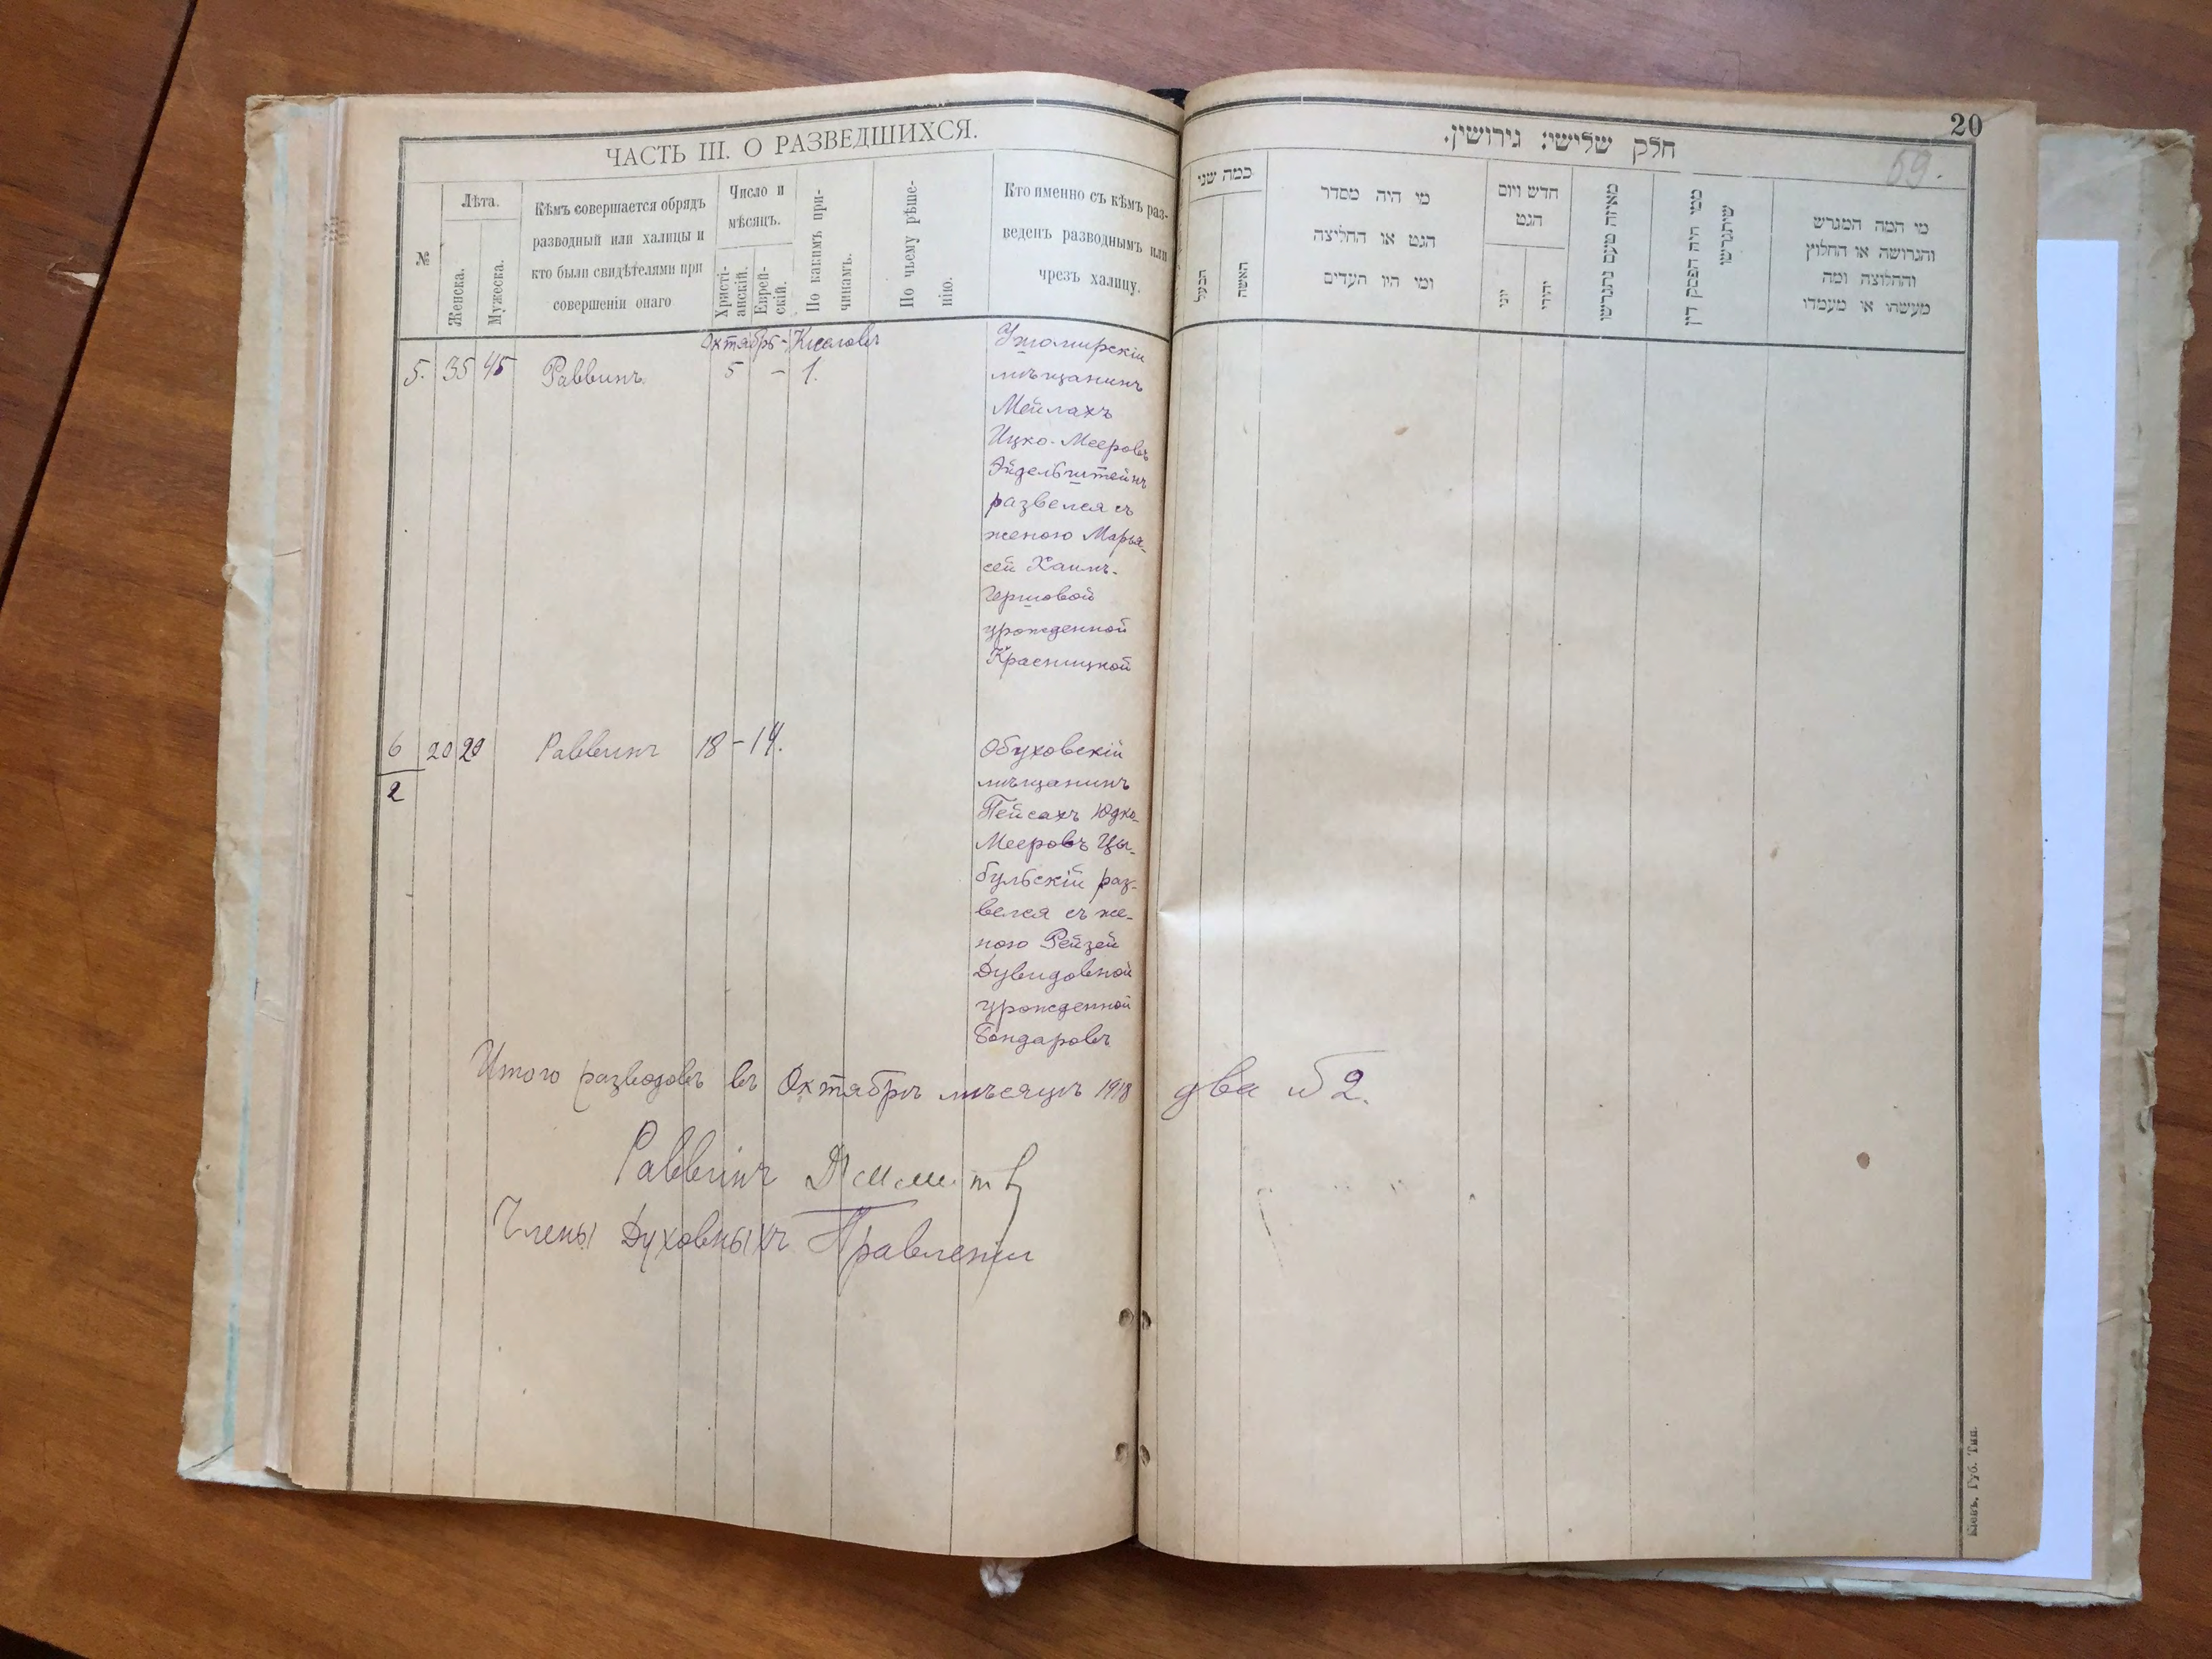 ЧАСТЬ III. О РАЗВЕДШИХСЯ.
№
Лѣта.
Женска.
Мужеска.
Кѣмъ совершается обрядъ
разводный или халицы и
кто были свидѣтелями при
совершеніи онаго
Число и
мѣсяцъ.
Христі-
анскій.
Еврей-
скій.
По какимъ при-
чинамъ.
По чьему рѣше-
нію.
Кто именно съ кѣмъ раз-
веденъ разводнымъ или
чрезъ халицу.
Октябрь - Кислевъ
5. 35 45 Раввинъ 5 - 1.
мѣщанинъ
Мейлахъ
Ицко-Мееровъ
Эйдельштейнъ
развелся съ
женою Марья-
сей Хаимъ-
Гершовой
урожденной
Красницкой
6 20 29 Раввинъ 18 - 14.
2
Обуховскій
мѣщанинъ
Пейсахъ Юдко-
Мееровъ Цы-
бульскій раз-
велся съ же-
ною Рейзей
Дувидовной
урожденной
Бондаровъ
Итого разводовъ въ Октябрѣ мѣсяцѣ 1918 два 2.
Раввинъ
Члены Духовныхъ Правленія
20
69.
חלק שלישי: גירושין.
כמה שני
הבעל
האשה
מי היה מסדר
הגט או החליצה
ומי היו העדים
חדש ויום
הגט
יוני
יהודי
מאיזה טעם נתגרשו
ממי היה הפסק דין
שיתגרשו
מי המה המגרש
והגרושה או החלוץ
והחלוצה ומה
מעשהו או מעמדו
Кіевъ, Губ. Тип.